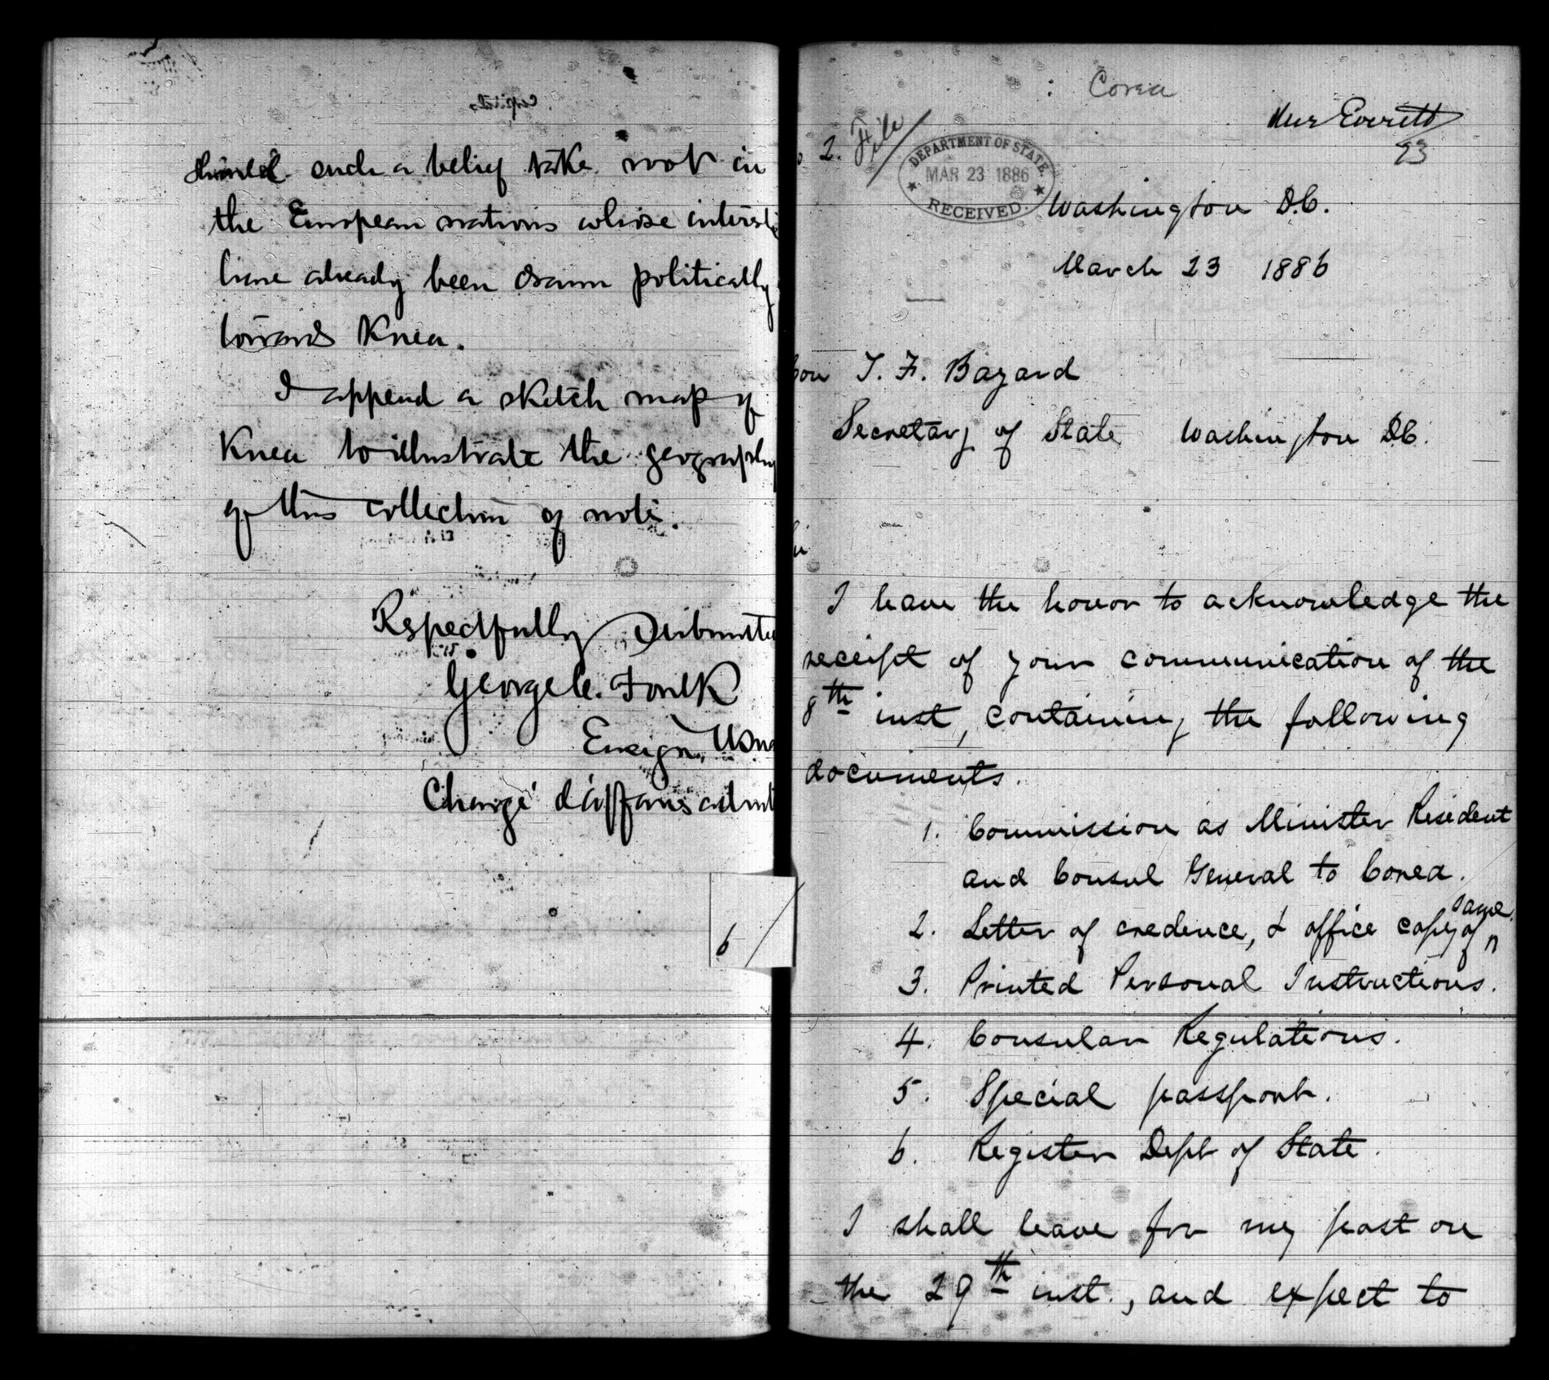 should such a belief take root in
the European nations whose interests
have already been drawn politically
towards Korea.
I append a sketch map of
Korea to illustrate the geography
of this collection of note.
Respectfully Submitte
George C. Foulk
Ensign, USN
Chargé d'affaires ad int
6
Corea
Mrs Everett
23
2. File
DEPARTMENT OF STATE
MAR 23 1886
RECEIVED.
Washington D.C.
March 23 1886
Hon T. F. Bayard
Secretary of State Washington D.C.
I have the honor to acknowledge the
receipt of your communication of the
8th inst, containing the following
documents.
1. Commission as Minister Resident
and Consul General to Corea.
2. Letter of credence, & office copy of same.
3. Printed Personal Instructions.
4. Consular Regulations.
5. Special passport.
6. Register Dept of State.
I shall leave for my post on
the 29th inst., and expect to